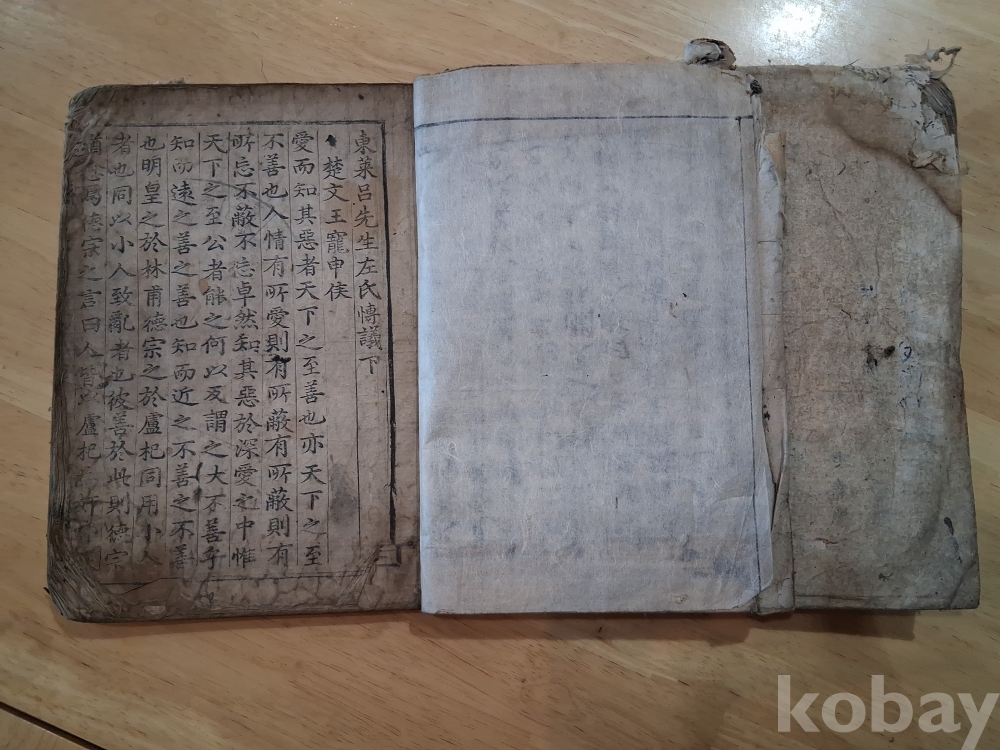 東萊呂先生左氏愽議下
楚文王寵申侯
愛而知其惡者天下之至善也亦天下之至
不善也人情有所愛則有所蔽有所蔽則有
所忘不蔽不忘卓然知其惡於深愛之中惟
天下之至公者能之何以反謂之大不善乎
知而遠之善之善也知而近之不善之不善
也明皇之於林甫德宗之於盧杞同用小人
者也同以小人致亂者也彼善於此則德宗
焉德宗之言曰人皆以盧杞
kobay